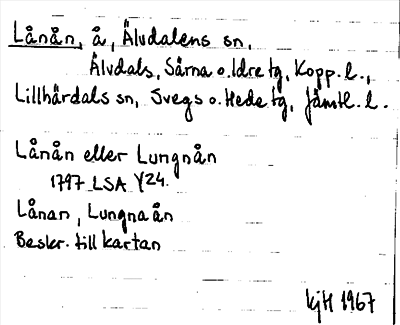 Lånån, å, Älvdalens sn,
Älvdals, Särna o. Idre tg, Kopp. l.,
Lillhärdals sn, Svegs o. Hede tg, Jämtl. l.
Lånån eller Lungnån
1797 LSA Y24.
Lånan, Lungnaån
Beskr. till kartan
kjH 1967